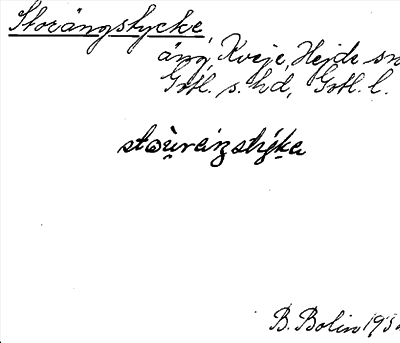 Storängstycke,
äng, Kveje, Hejde sn
Gotl. s. hd, Gotl. l.
stoùrai̯ŋstýka
B. Bolin 193